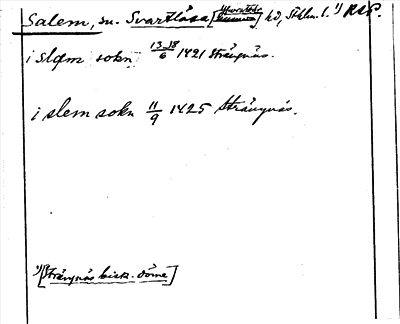 Salem, sn. Svartlösa hd, Sthlm. l. ¹) RAP.
i slem sokn 13-18/6 1421 Strängnäs.
i slem sokn 11/9 1425 Strängnäs.
¹) [Strängnäs bisk. döme]